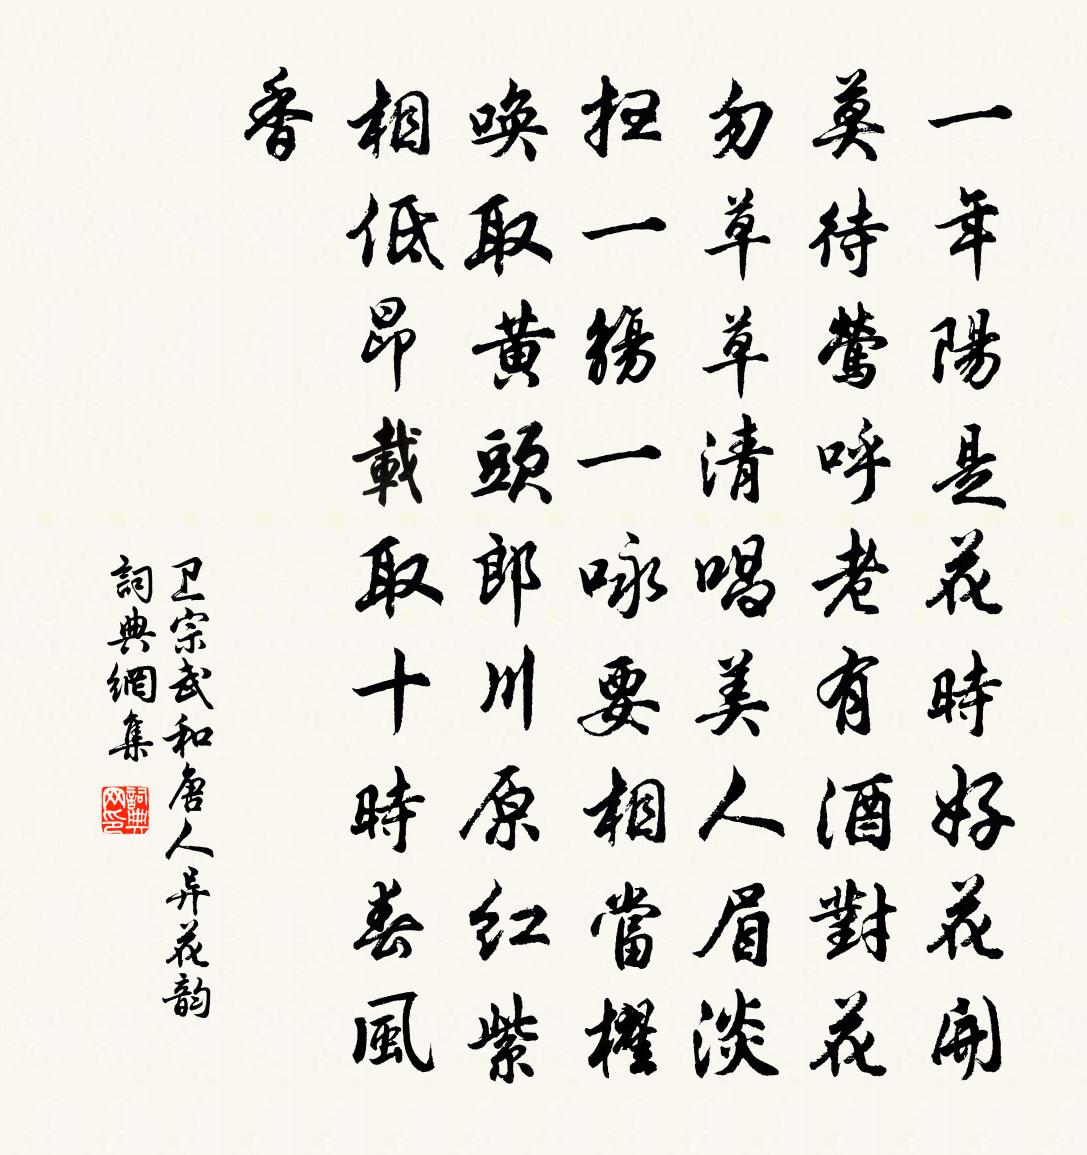 一年陽是花時好花開
莫待鶯呼老有酒對花
勿草草清唱美人眉淡
扫一觴一咏要相當櫂
唤取黄頭郎川原红紫
相低昂載取十時春風
香
卫宗武和唐人异花韵
詞典網集
詞典网印